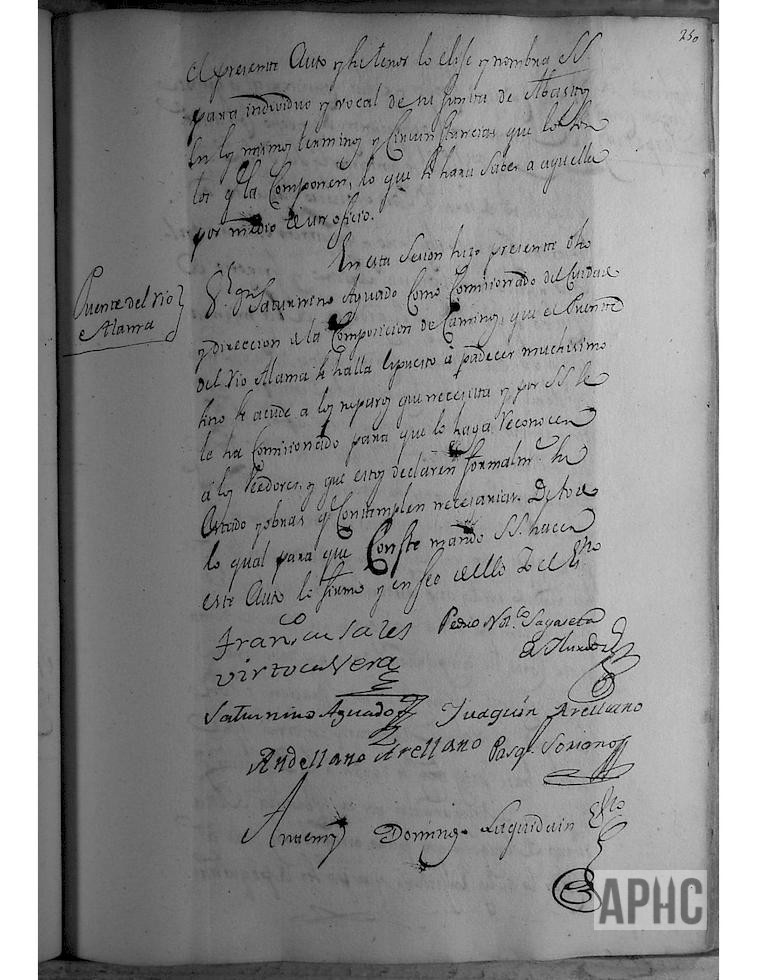 250
el presente Auto y su tenor lo elije y nombra SS.
para individuo y vocal de su Junta de Abastos
en los mismos terminos y Circunstancias que lo son
los q.e la Componen, lo que se hara saber a aquella
por medio de un oficio.
Puente del Rio
Alama
En esta Sesion hizo presente dho
S.r d.n Saturnino Aguado Como Comisionado del Cuidado
y direccion de la Composicion de Caminos, que el Puente
del Rio Alama se halla expuesto à padecer muchisimo
sino se acude a los reparos que necesita y por SS. se
le ha Comisionado para que lo haga reconocer
à los Veedores, y que estos declaren formalm.te su
Estado y obras q.e Contemplen necesarias. De todo
lo qual para que Conste mando SS. hacer
este Auto lo firmo y en feo de ello Yo el Ess.no
Fran.co de Sales
Virto de Vera
Pedro Nol.co Sagaseta
de Ylurdoz
Saturnino Aguado
Juaquin Arellano
Arellano
Pasq.l Soriano
Antemy
Domingo Laquidain Ess.no
APHC